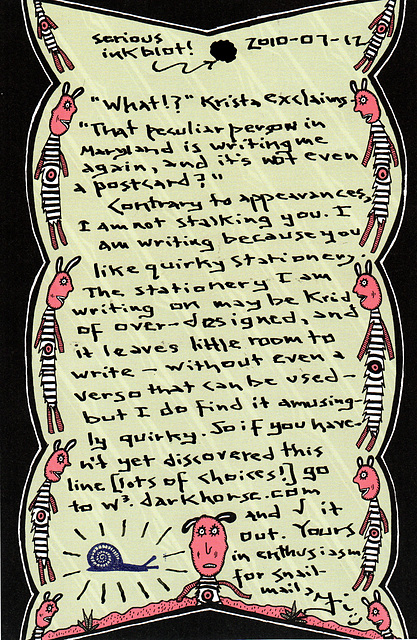 serious 2010-07-12
inkblot!
"What!?" Krista exclaims.
"That peculiar person in
Maryland is writing me
again, and it's not even
a postcard?"
Contrary to appearances,
I am not stalking you. I
am writing because you
like quirky stationery.
The stationery I am
writing on may be kind
of over-designed, and
it leaves little room to
write – without even a
verso that can be used –
but I do find it amusing-
ly quirky. So if you have-
n't yet discovered this
line [lots of choices!] go
to w³.darkhorse.com
and √ it
out. Yours
in enthusiasm
for snail
mail,